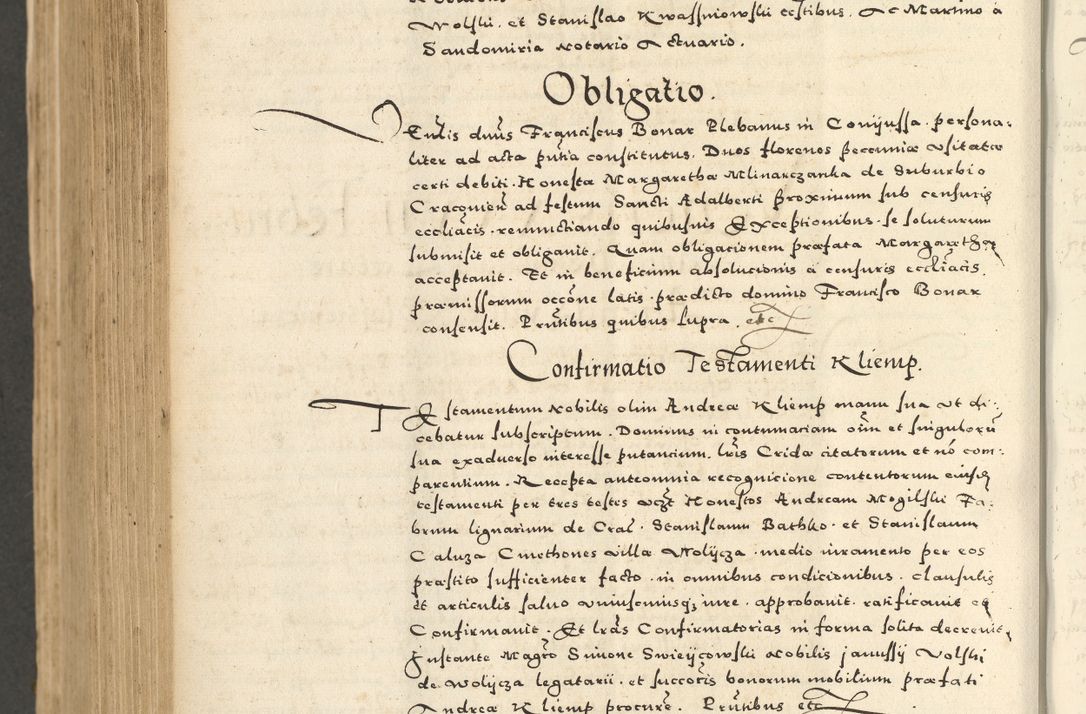 Wolski, et Stanislao Kwassniowski testibus. Ac Martino à
Sandomiria notario Actuario.
Obligatio.
Venlis dnus Franciscus Bonar Plebanus in Coniussa. persona-
liter ad acta pntia constitutus. Duos florenos peccuniæ usitatæ
certi debiti. Honestæ Margarethæ Mlinarczanka de Suburbio
Cracouien ad festum Sancti Adalberti proximum sub censuris
eccliacis. renunctiando quibusuis Exceptionibus. se soluturum
submisit et obligauit. Quam obligationem præfata Margaretha
acceptauit. Et in beneficium absolucionis à censuris eccliacis.
præmissorum occone latis. prædicto domino Francisco Bonar
consensit. Pntibus quibus supra. etc
Confirmatio Testamenti Kliemp.
TEstamentum nobilis olim Andreæ Kliemp manu sua ut di-
cebatur subscriptum. Dominus in contumaciam oim et singulorũ
sua exaduerso interesse putancium. lris Cridæ citatorum et nõ com-
parentium. Recepta anteomnia recognicione contentorum eiusdẽ
testamenti per tres testes uczt Honestos Andream Mogilski Fa-
brum lignarium de Crac. Stanislaum Bathko. et Stanislaum
Caluza Cmethones villæ Wolijcza. medio iuramento per eos
præstito sufficienter facto. in omnibus condicionibus. clausulis
et articulis saluo vniuscuiusq; iure. approbauit. ratificauit et
Confirmauit. Et lras Confirmatorias in forma solita decreuit,
Instante Magro Simone Swieijcowski nobilis janussij Wolski
de Wolijcza legatarii. et succoris bonorum mobilium præfati
Andreæ Kliemp procure. Pntibus etc